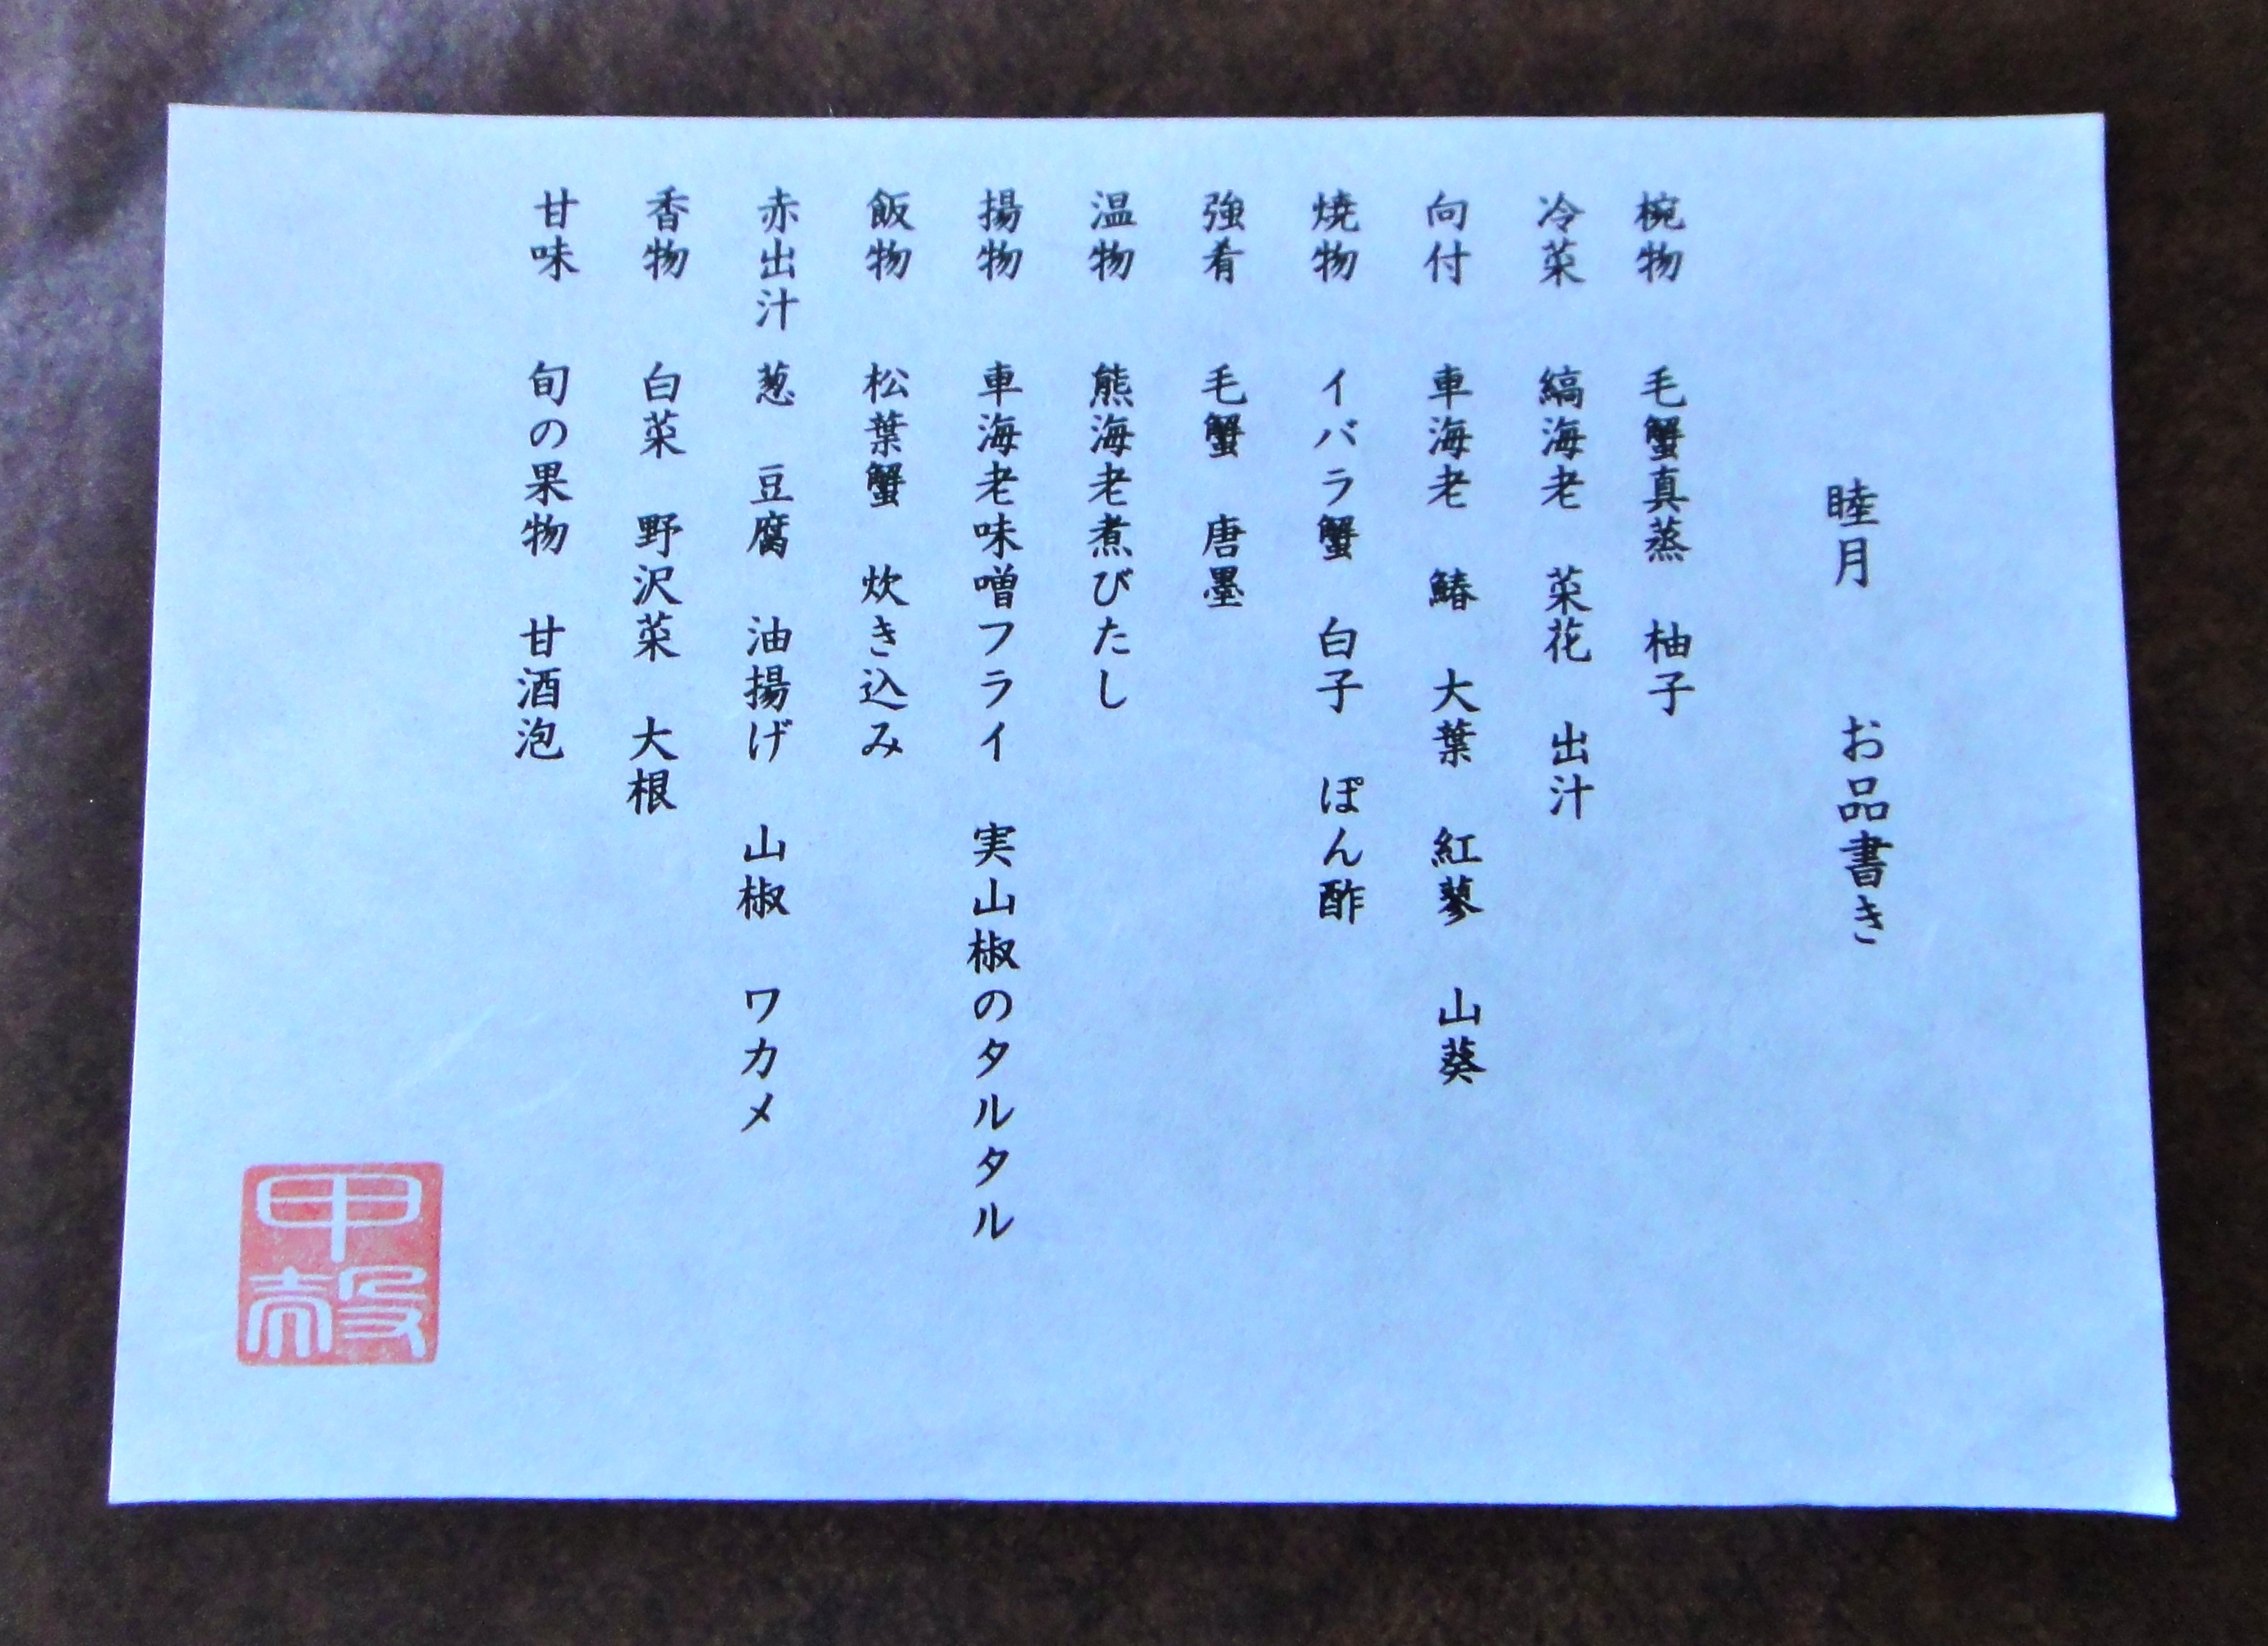 睦月　お品書き
椀物　毛蟹真蒸　柚子
冷菜　縞海老　菜花　出汁
向付　車海老　鰆　大葉　紅蓼　山葵
焼物　イバラ蟹　白子　ぽん酢
強肴　毛蟹　唐墨
温物　熊海老煮びたし
揚物　車海老味噌フライ　実山椒のタルタル
飯物　松葉蟹　炊き込み
赤出汁　葱　豆腐　油揚げ　山椒　ワカメ
香物　白菜　野沢菜　大根
甘味　旬の果物　甘酒泡
甲
殻